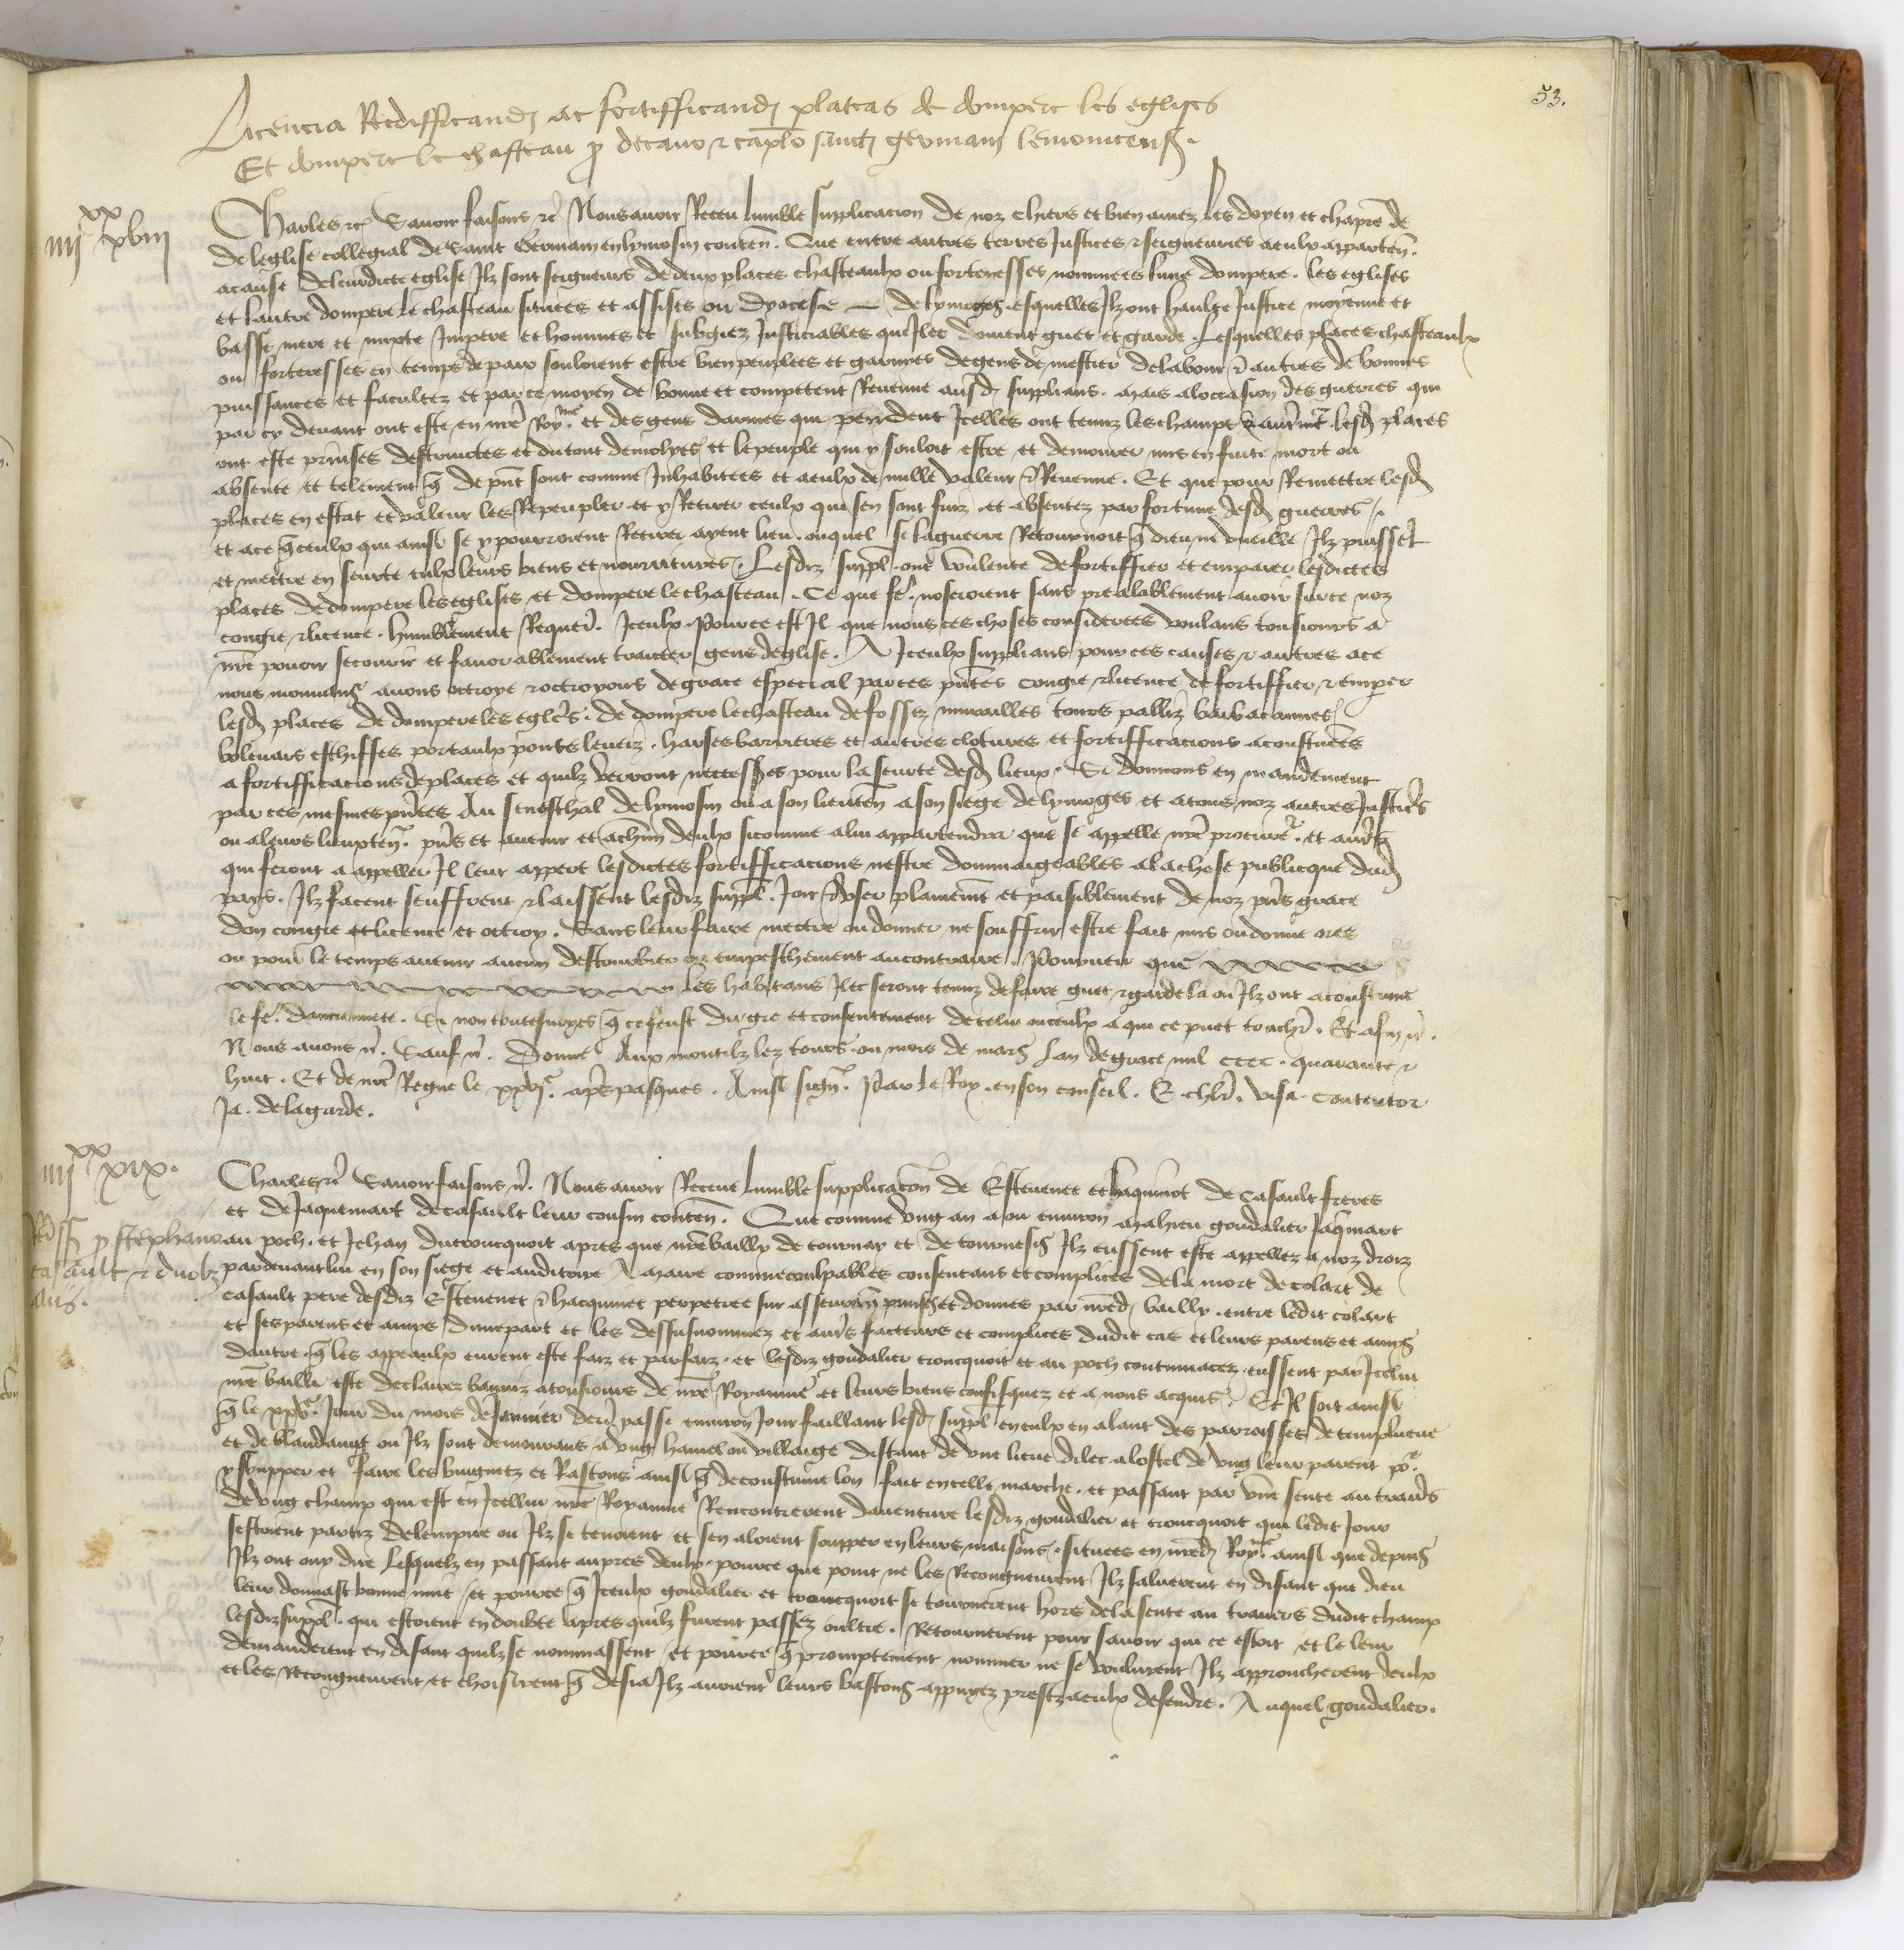 53.
Licencia Reediffican ac fortifficand plateas de dompere les eglises
Et dompere le chasteau p decano & caplo sancti germani lemonicens.
iiij xx xviij
Charles &c Savoir faisons &c Nous avoir Receu lumble supplicacion de noz chiers et bien amez Les doyen et chapre de
de leglise collegial de saint Germain en lymosin conten. Que entre autres terres Justices & seigneuries a eulx apparten.
a cause de leurdicte eglise Ilz sont seigneurs de deux places chasteaulx ou forteresses nommees lune dompere les eglises
et lautre dompere le chasteau situees et assises ou dyocese de lymoges esquelles Ilz ont haulte Justice moyenne et
basse mere et mixte Impere et hommes et subgiez Justiciables qui Ilec doivent guet et garde. Lesquelles places chasteaulx
ou forteresses en temps de paix souloient estre bien peuplees et garnies de gens de mestier de labour & autres de bonnes
puissances et facultez et par ce moyen de bonne et competent Revenue ausd supplians. Mais a loccasion des guerres qui
par cy devant ont este en nre Royme et des gens darmes qui pendent Icelles ont tenuz les champs & autrement lesd places
ont este prinses destruictes et du tout demolyes et le peuple qui y souloit estre et demourer mis en fuite mort ou
absente et telement q de pnt sont comme Inhabitees et a eulx de nulle valeur & Revenue. Et que pour Remettre lesd
places en estat et valeur les Repeupler et y Retirer ceulx qui sen sont fuiz et absentez par fortune desd guerres
et a ce q ceulx qui ainsi se y pourroient Retirer ayent lieu ouquel se la guerre Retournoit q dieu ne vueille Ilz puissent
et mettre en seurte eulx leurs biens et nourritures. Lesdiz suppl ont voulente de fortiffier et emparer lesdictes
places de dompere les eglises et dompere le chasteau. Ce que fe. noseroient sans prealablement avoir sur ce noz
congie & licence humblement Requer. Iceulx. Pour ce est Il que nous ces choses considerees voulans tousiours a
nre povoir secourir et favorablement traicter gens deglise. A Iceulx supplians pour ces causes & autres a ce
nous mouvans avons octroye & octroyons de grace especial par ces pntes congie & licence de fortiffier & emper
lesd places de dompere les eglises. de dompere le chasteau de fossez murailles tours palliz barbacannes
bolevars eschiffes portaulx ponts leveiz. herses barrieres et autres clotures et fortifficacions acoustumees
a fortifficacions de places et quilz verront necesses pour la seurte desd lieux. Si donnons en mandement
par ces mesmes pntes Au seneschal de lymosin ou a son lieuten a son siege de lymoges et a tous noz autres Justiciers
ou a leurs lieuxten. pns et avenir et a chun deulx si comme a lui appartendra que se appelle nre procure. et autres
qui seront a appeller Il leur appert lesdictes fortifficacions nestre dommaigeables a la chose publicque dud
pays. Ilz facent seuffrent & laissent lesdiz suppl. Joir & user plainement et paisiblement de noz pns grace
don congie et licence et octroy. Sans leur faire mettre ou donner ne souffrir estre fait mis ou donne ores
ou pour le temps avenir aucun destourbier ou empeschement au contraire. Pourveu que
les habitans Ilec seront tenuz de faire guet & garde la ou Ilz ont acoustume
le fe. danciennete. Et non toutesvoyes q ce feust du gre et consentement de celui ou ceulx a qui ce puet toucher. Et afin &c.
Nous avons &c. Sauf &c. Donne Aux montilz lez tours. ou mois de mars Lan de grace mil cccc. quarante &
huit. Et de nre Regne le xxvije. apres pasques. Ainsi signe. Par le Roy en son conseil. E. chlr. visa contentor
Ja. de lagarde.
iiij xx xix.
Charles &c Savoir faisons &c. Nous avoir Receue lumble supplicacion de Estevenet et haquinot de casault freres
et de Jaquemart de casault leur cousin conten. Que comme ung an a ou environ Mahieu goudalier Jaqmart
au poch. et Jehan du troncquoit apres que nre bailly de tournay et de tournesis Ilz eussent este appellez a noz droiz
Remiss p stephano
casault & duobz
aliis.
par devant lui en son siege et auditoire A Maire comme coulpables consentans et complices de la mort de colart de
casault pere desdiz Estevenet & hacquinet perpetree sur asseuremt prinses et donnes par nred bailly. entre ledit colart
et ses parens et amys dune part et les dessusnommez et autrs facteurs et complices dudit cas et leurs parens et amys
dautre. q les appeaulx eurent este faiz et parfaiz. et lesdiz goudalier troncquoit et au poch contumacez. eussent par Icelui
nre bailli este declairez banniz a tousiours de nre Royaume et leurs biens confisquez et a nous acquis. Et Il soit ainsi
q le xxve. Jour du mois de Janvier derr passe environ Jour faillant lesd suppl en eulx en alant des parroisses de templeuve
et de blandaing ou Ilz sont demourans a ung hamel ou villaige distant de une lieue dilec a lostel de ung leur parent po.
y soupper et faire les buignetz et Rastons ainsi q de coustume lon fait en celle marche. et passant par une sente au travers
de ung champ qui est en Icellui nre Royaume Rencontrerent daventure lesdiz goudalier et troncquoit qui ledit Jour
sestoient partiz de lempire ou Ilz se tenoient et sen aloient soupper en leurs maisons. situees en nred Royme. ainsi que depuis
Ilz ont ouy dire Lesquelz en passant aupres deulx. pource que point ne les Recongneurent Ilz saluerent en disant que dieu
leur donnast bonne nuit et pource q Iceulx goudalier et troncquoit se tournerent hors de la sente au travers dudit champ
lesdiz suppl. qui estoient en doubte apres quilz furent passez oultre. Retournerent pour savoir qui ce estoit et le leur
demanderent en disant quilz se nommassent et pource q promptement nommer ne se voulurent Ilz approucherent deulx
et les Recongneurent et choisirent q desia Ilz avoient leurs bastons appuyez prestz a eulx defendre. Auquel goudalier.